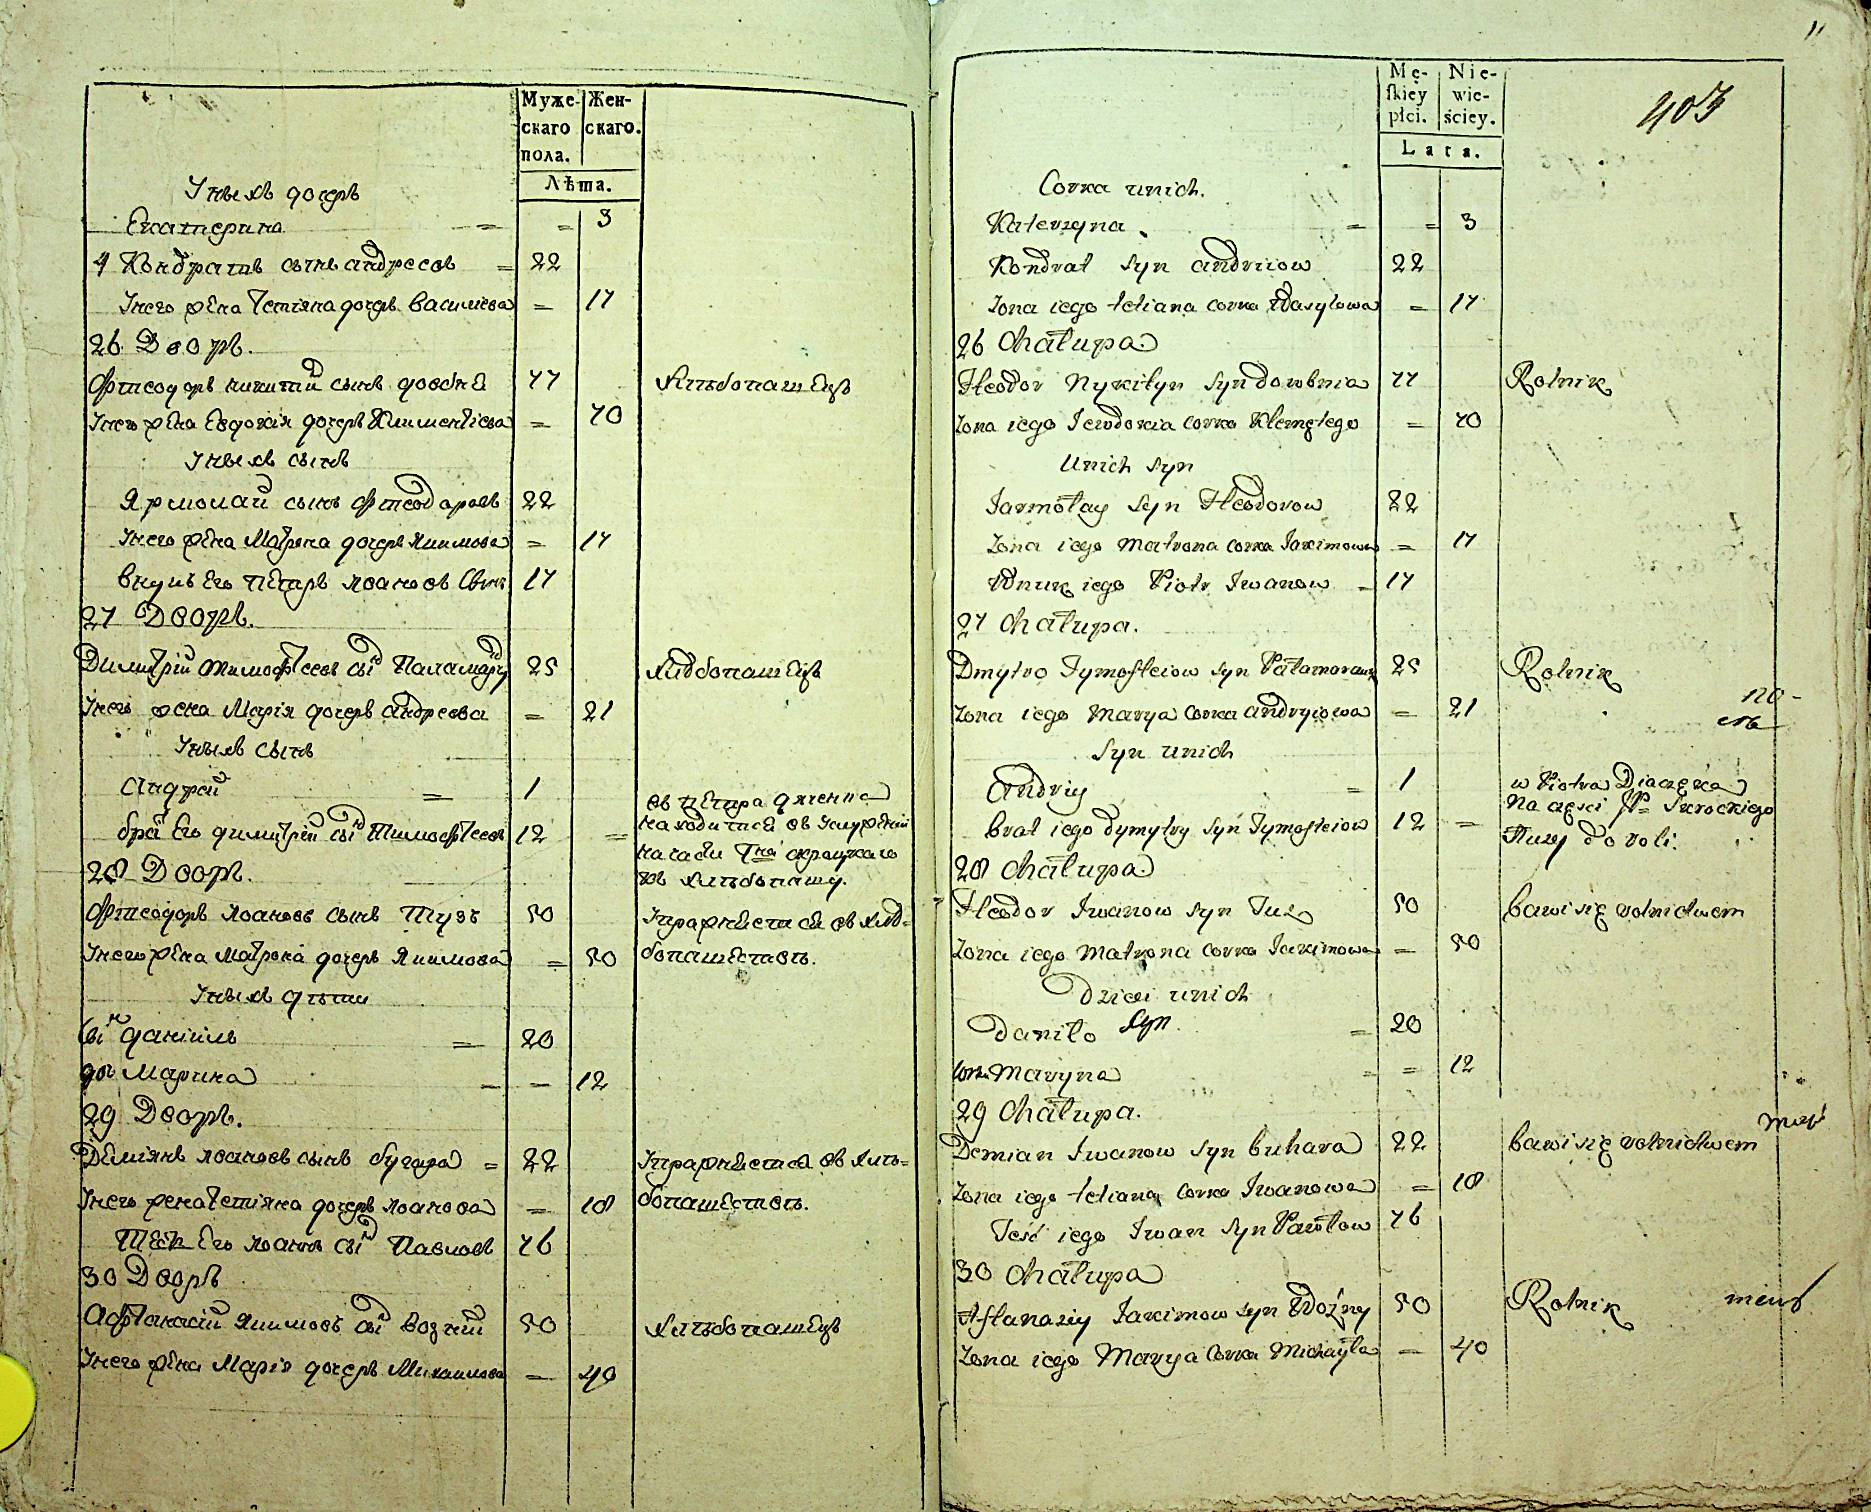 Муже-
скаго
пола.
Жен-
скаго.
Лѣта.
У нихъ дочерь
Екатерина = = 3
4 Кондратъ сынъ андреевъ = 22
У него жена Тетiяна дочерь василiева = 17
26 Дворъ.
Фтеодоръ никитинъ сынъ довбня 77 хлѣбопашецъ
У него жена Евдокiя дочерь Климентiева = 70
У нихъ сынъ
Ярмолай сынъ Фтеодоровъ 22
У него жена Матрона дочерь Якимова = 17
внукъ Его Петръ Iоановъ Сынъ 17
27 Дворъ.
Димитрiй тимофтеевъ сынъ Паламарчук 25 хлѣбопашецъ
У него жена Марiя дочерь андреева = 21
У нихъ сынъ
Андрей = 1
братъ Его димитрiй сынъ Тимофтеевъ 12 =
въ Петра дяченка
находится въ услуженiи
на части Пна скроцкаго
въ хлѣбопашу.
28 Дворъ.
Фтеодоръ Iоановъ сынъ Тузъ 50 Упражняется въ хлѣб=
У него жена Матрона дочерь Якимова = 50 бопашествѣ.
У нихъ дѣти
сынъ данiилъ = 20
дочь Марина = = 12
29 Дворъ.
Демiянъ Iоановъ сынъ бугара = 22 Упражняется въ хлѣ=
У него жена Тетiяна дочерь Iоанова = 18 бопашествѣ.
Тесть Его Iоаннъ сынъ Павловъ 76
30 Дворъ
Афтанасiй Якимовъ сынъ возный 50 хлѣбопашецъ
У него жена Марiя дочерь Михаилова = 40
11
403
Mę-
skiey
płci.
Nie-
wie-
ściey.
Lata.
Corka unich.
Katerzyna = = 3
Kondrat syn andriiow 22
Zona iego tetiana corka Wasylowa = 17
26 Chałupa
Fteodor Nykityn syn dowbnia 77 Rolnik
Zona iego Jewdokia corka Klemętego = 70
Unich syn
Jarmołay syn Fteodorow 22
Zona iego Matrona corka Jakimowa = 17
Wnuk iego Piotr Iwanow = 17
27 Chałupa.
Dmytro Tymofteiow syn Pałamarczuk 25 Rolnik
Zona iego Marya corka andryiowa = 21
Syn unich
Andriy = 1
brat iego dymytry syn Tymofteiow 12 =
w Piotra Diaczęka
na częsci JP= Skrockiego
służy do roli.
28 Chałupa
Fteodor Iwanow syn Tuz 50 bawi się rolnictwem
Zona iego Matrona corka Jakimowa = 50
Dzieci unich
Daniło Syn = 20
Corka Maryna = = 12
29 Chałupa.
Demian Iwanow syn buhara 22 bawi się rolnictwem
Zona iego tetiana corka Iwanowa = 18
Teść iego Iwan syn Pawłow 76
30 Chałupa
Aftanaziy Jakimow syn Woźny 50 Rolnik
Zona iego Marya Corka Michayła = 40